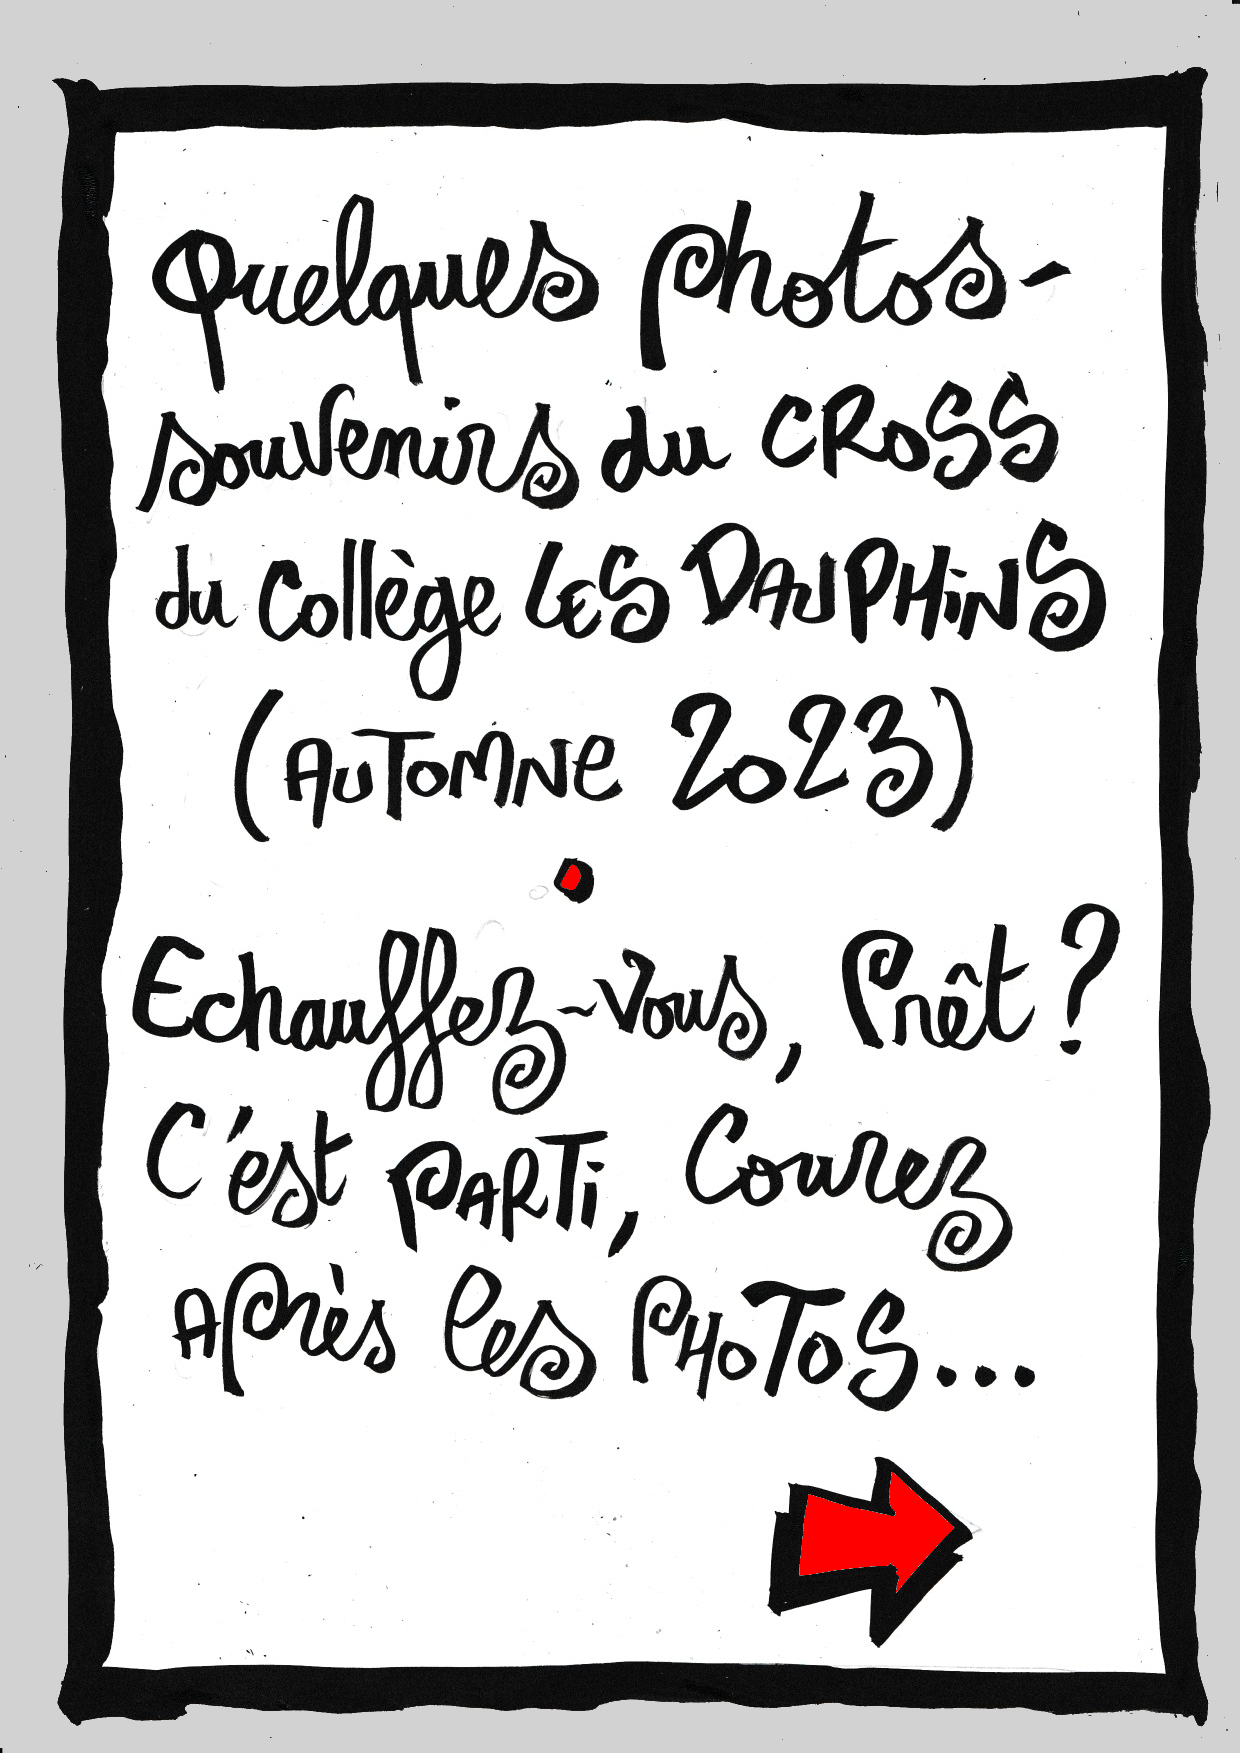 Quelques photos-
souvenirs du CROSS
du Collège LES DAUPHINS
(AUTOMNE 2023)
Echauffez-vous, Prêt ?
C'est PARTI, Courez
après les PHOTOS...